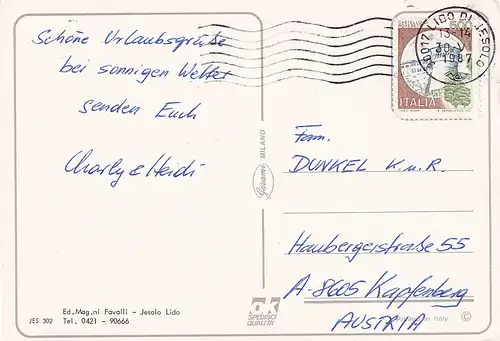 Schöne Urlaubsgrüße
bei sonnigen Wetter
senden Euch
Charly & Heidi
Ed.Mag.ni Favalli - Jesolo Lido
JES 302
Tel. 0421 - 90666
Garami MILANO
OK
SPEDISCI
QUALITA'
500
ITALIA
30017 LIDO DI JESOLO
13-14
30.
1987
Fam.
DUNKEL K. u. R.
Haubergerstraße 55
A-8605 Kapfenberg
AUSTRIA
Printed in Italy ©